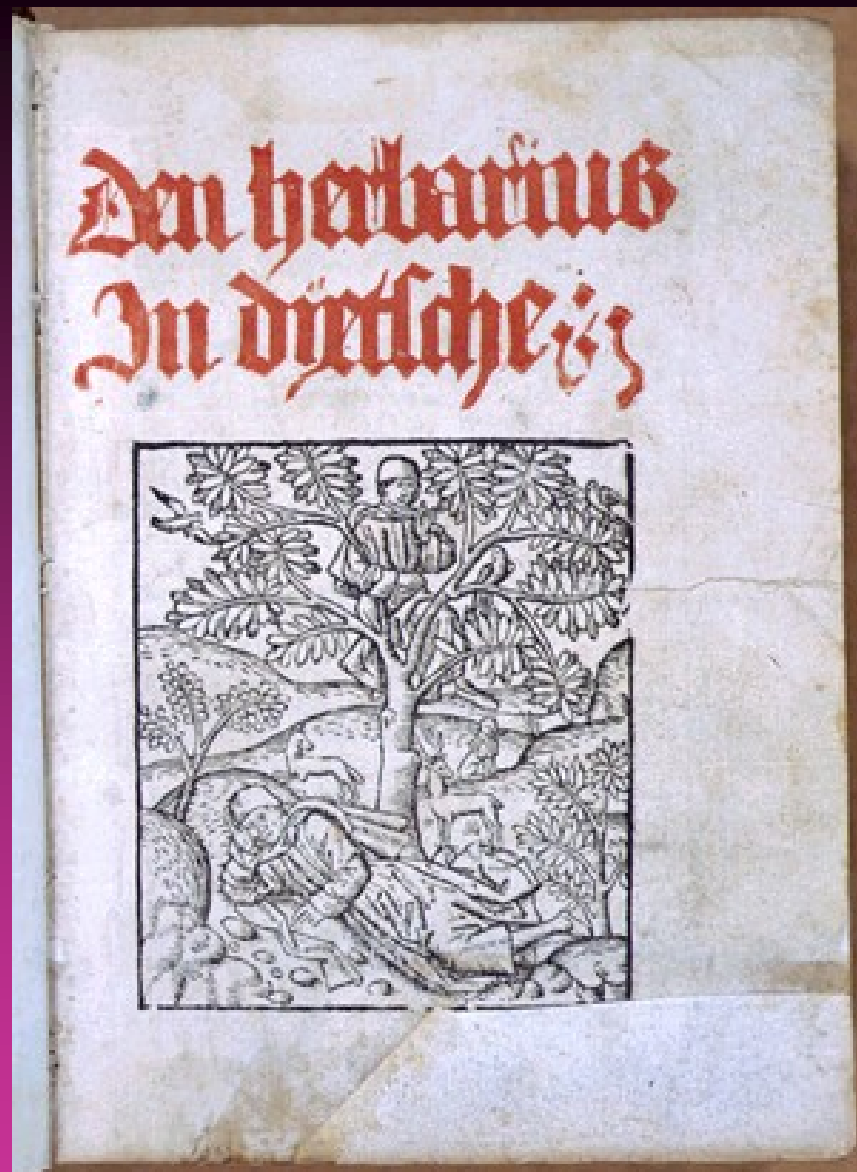 Den herbarius
In dyetsche